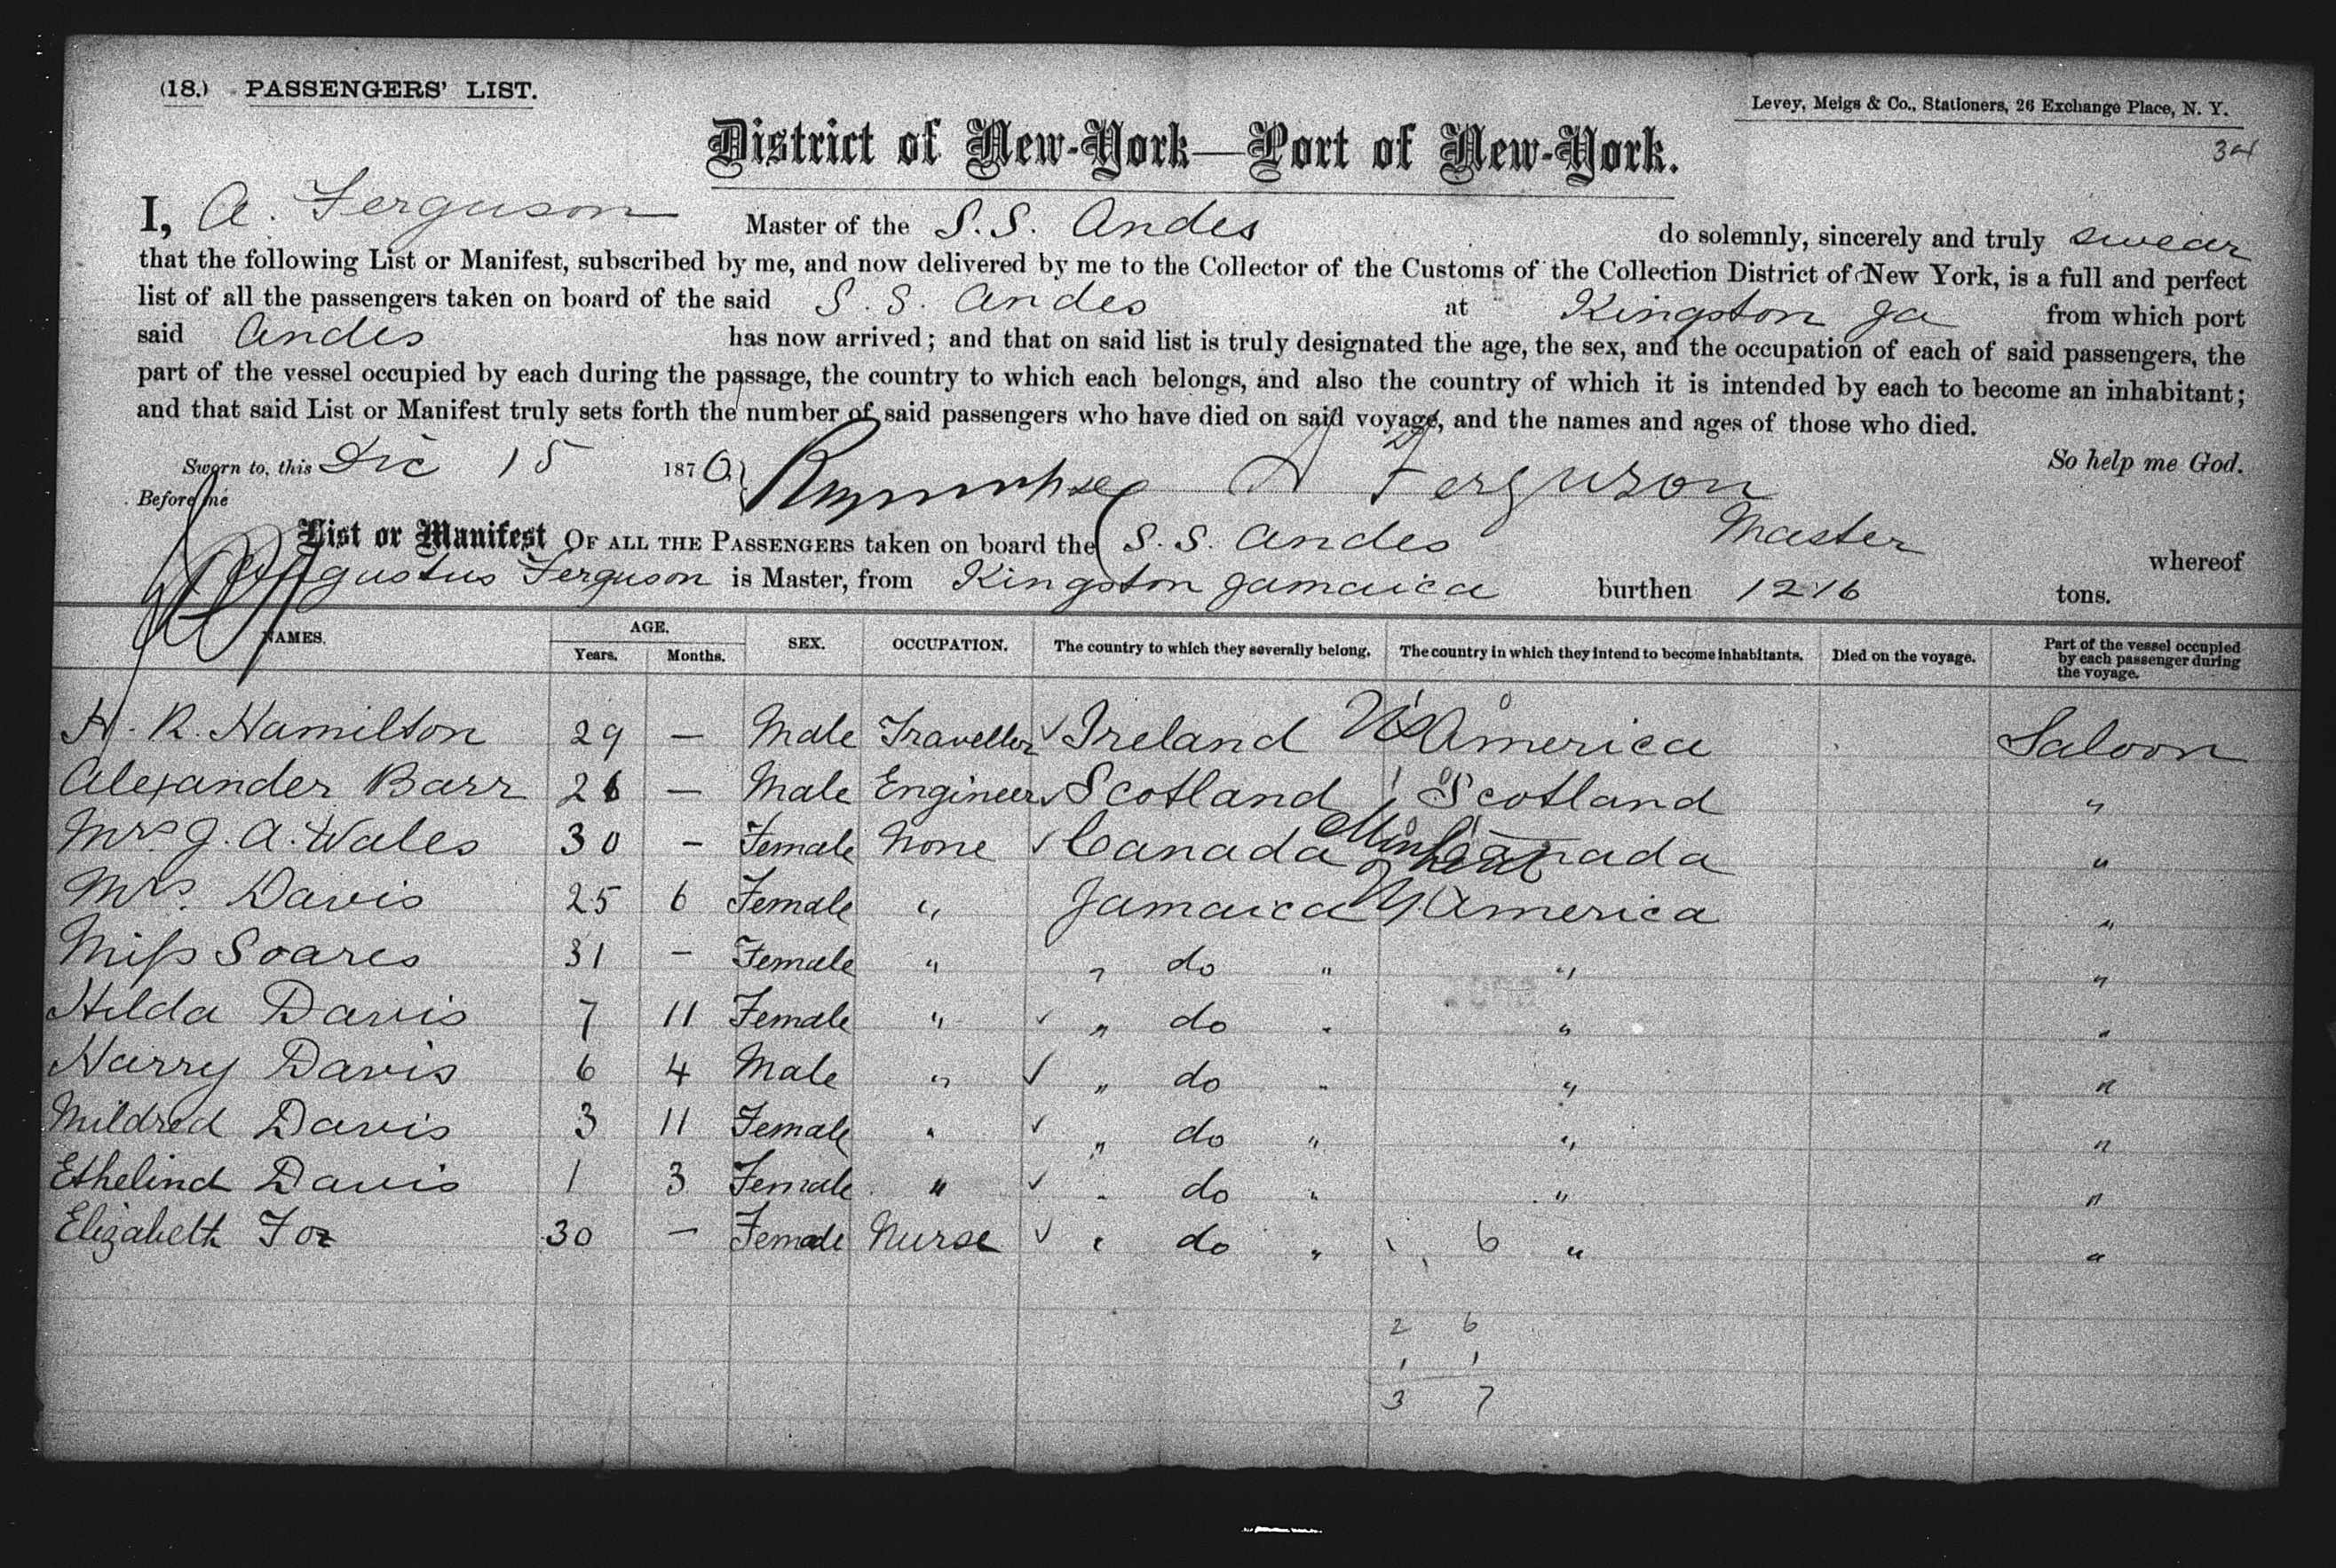 (18.) PASSENGERS' LIST.
Levey, Meigs & Co., Stationers, 26 Exchange Place, N. Y.
District of New-York—Port of New-York.
I, A. Ferguson Master of the S.S. Andes do solemnly, sincerely and truly swear
that the following List or Manifest, subscribed by me, and now delivered by me to the Collector of the Customs of the Collection District of New York, is a full and perfect
list of all the passengers taken on board of the said S. S. Andes at Kingston Ja from which port
said Andes has now arrived; and that on said list is truly designated the age, the sex, and the occupation of each of said passengers, the
part of the vessel occupied by each during the passage, the country to which each belongs, and also the country of which it is intended by each to become an inhabitant;
and that said List or Manifest truly sets forth the number of said passengers who have died on said voyage, and the names and ages of those who died.
Sworn to, this Dec 15 187 A Ferguson So help me God.
Before me
List or Manifest OF ALL THE PASSENGERS taken on board the S. S. Andes Master whereof
Augustus Ferguson is Master, from Kingston Jamaica burthen 1216 tons.
NAMES. AGE. Years. Months. SEX. OCCUPATION. The country to which they severally belong. The country in which they intend to become inhabitants. Died on the voyage. Part of the vessel occupied by each passenger during the voyage.
H. R. Hamilton 29 — Male Traveller ✓ Ireland America Saloon
Alexander Barr 26 — Male Engineer ✓ Scotland Scotland "
Mrs. J. A. Wales 30 - Female None ✓ Canada Canada "
Mrs. Davis 25 6 Female " Jamaica America "
Miss Soares 31 - Female " " do " " "
Hilda Davis 7 11 Female " ✓ " do " " "
Harry Davis 6 4 Male " ✓ " do " " "
Mildred Davis 3 11 Female " ✓ " do " " "
Ethelind Davis 1 3 Female " ✓ " do " " "
Elizabeth Fox 30 — Female Nurse ✓ " do " 6 " "
2 6
1 1
3 7